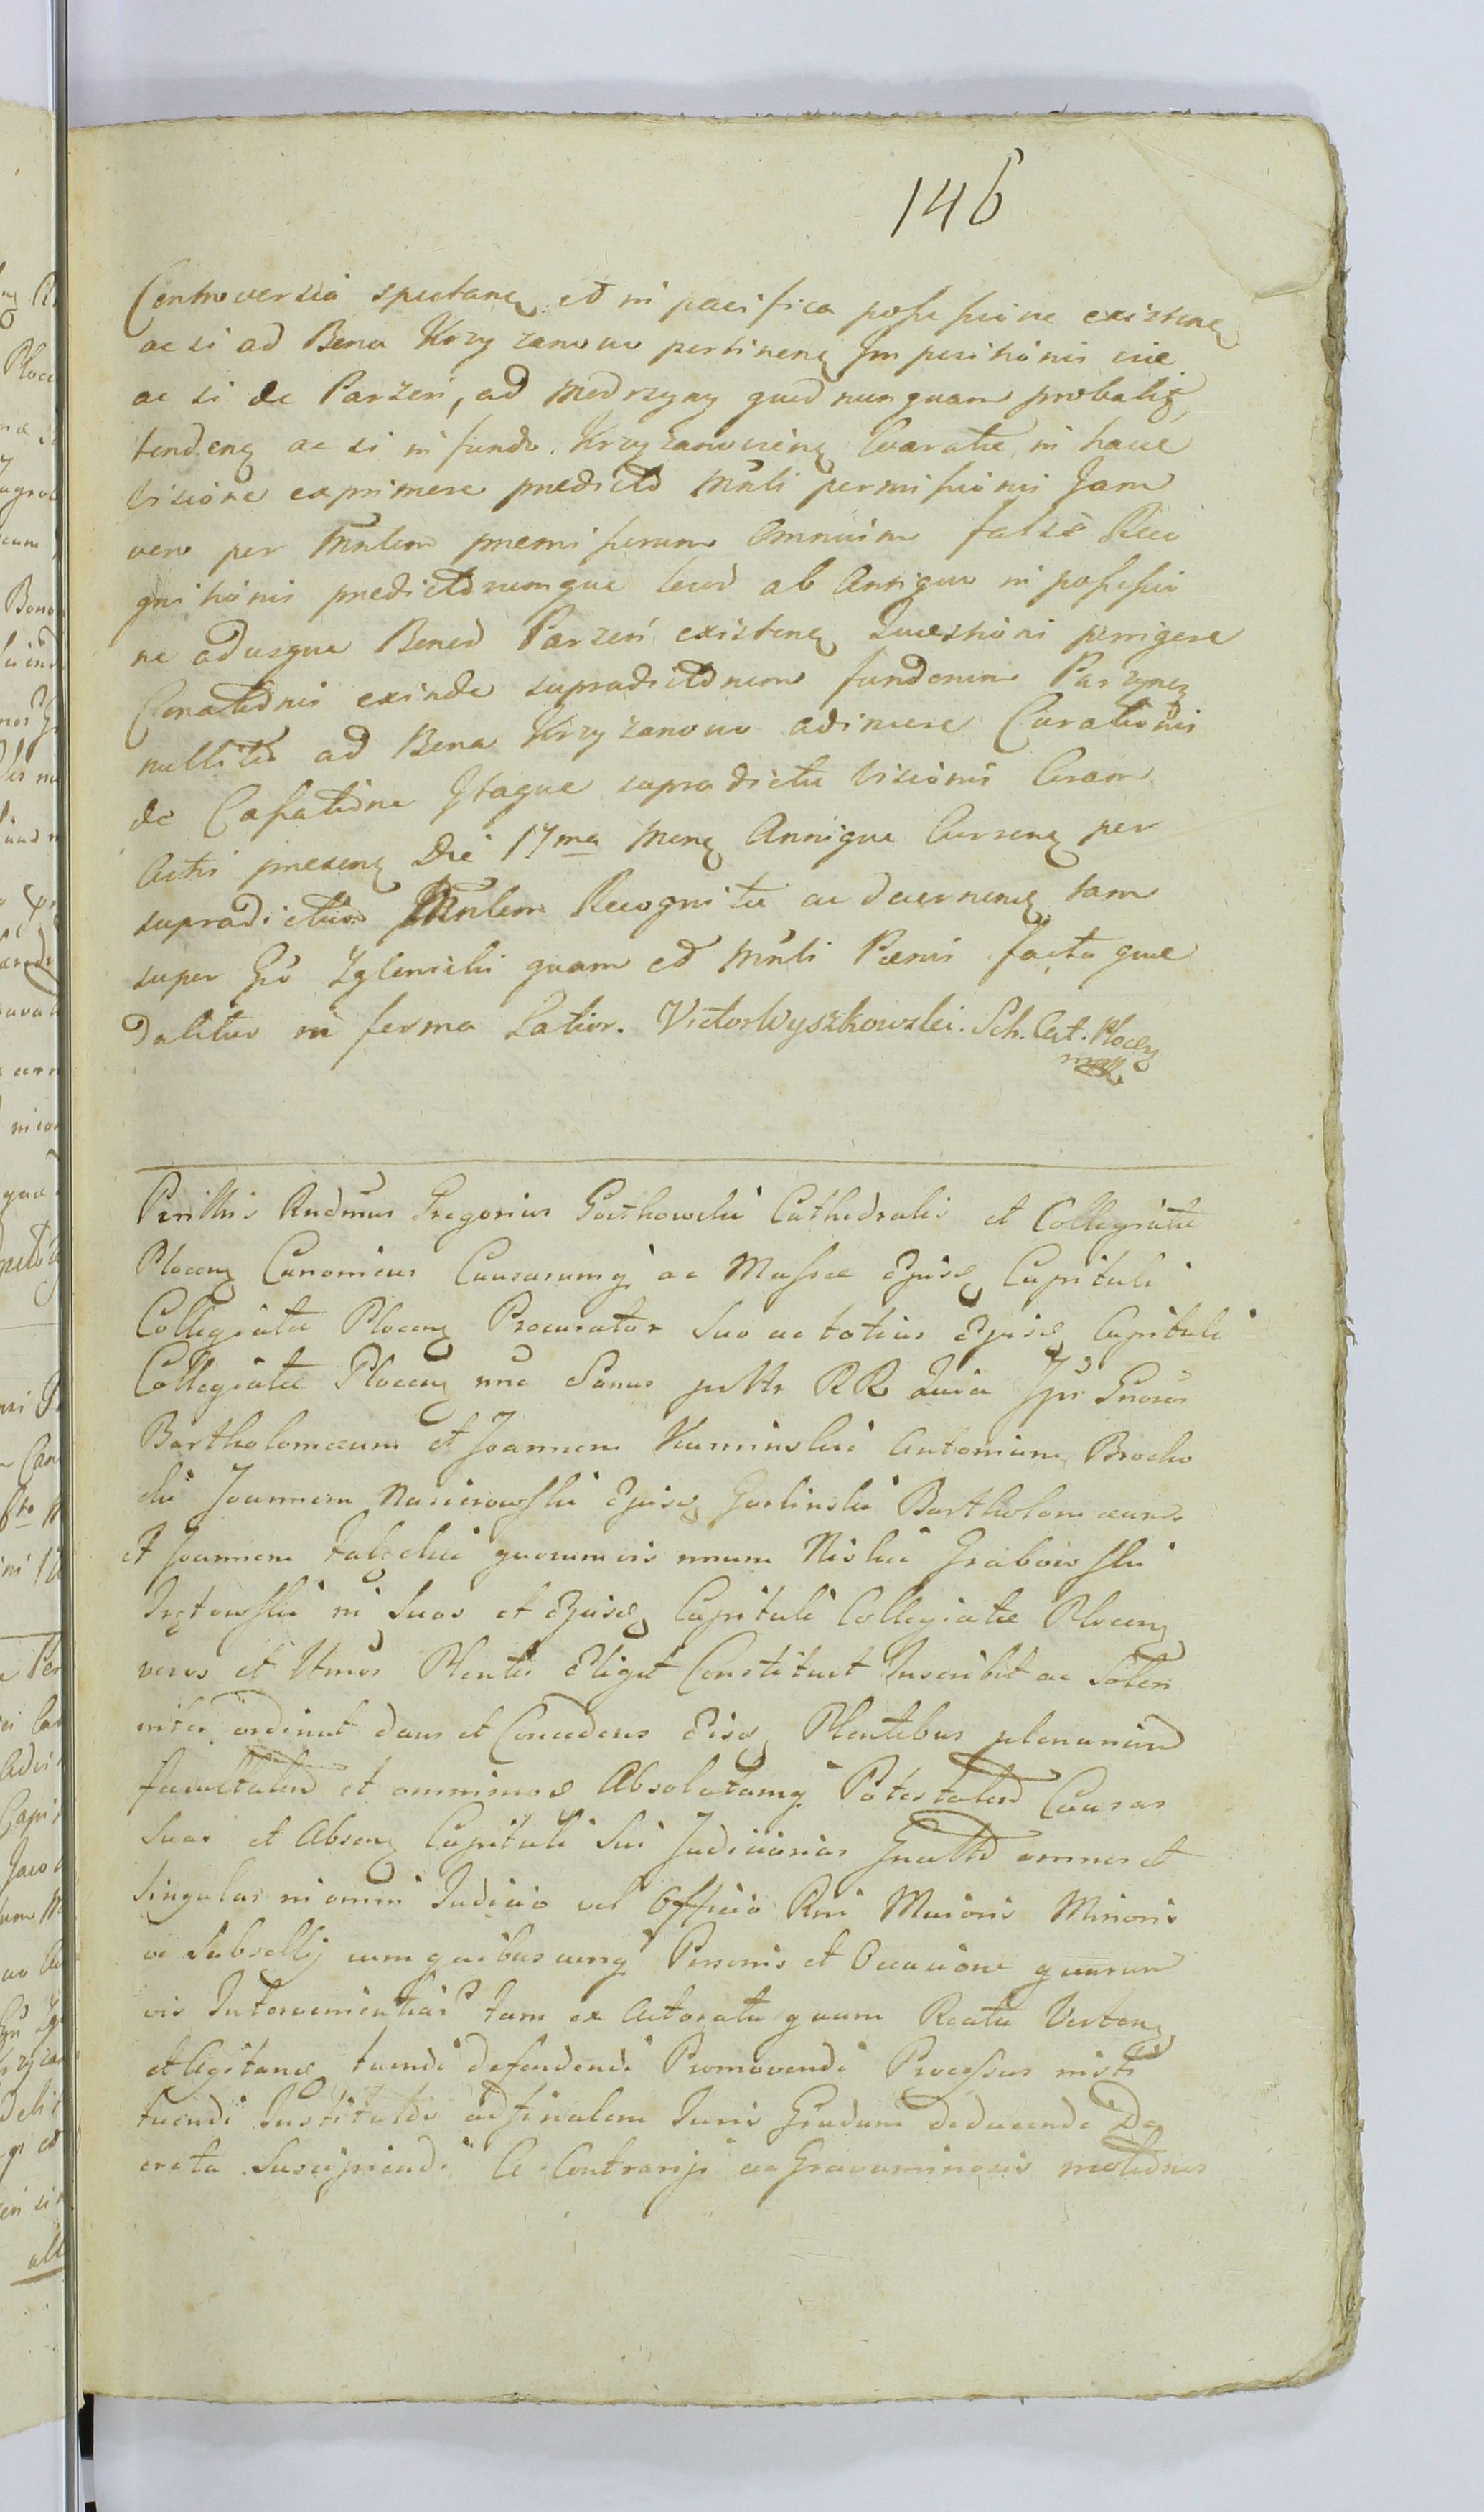 146
Controversia spectanę et in pacifica possessione existenę
ac si ad Bona Krzyzanowo pertinenę Impositionis viæ
ac si de Parzen, ad Modrzyny quod nunquam probabiť
tendenę ac si in fundo Krzyzanoviena locatæ in hacce
Visione exprimere predictd Mnli permissionis Jam
vero per Mnlem premissorum omnium false Reco
gnitionis predictdrumque ab Antiquo in possessio
ne adusque Bonod Parzen existenę Quæstioni porrigere
Conatidnis exinde supradictdrum fundorum Parzynę
nullitd ad Bona Krzyzanowo adimere Curationis
de Cassatidne Itaque supradictæ Visionis Coram
Actis presenę Die 17ma Menę Annique Currenę per
supradictum Mnlem Recognitæ ac decernenę tam
super Gd Zglenicki quam ed Mnli Pænis factaque
dabitur in forma Latior. Victor Wyszkowski. Sch. Cat. Plocen
mp
Perillris Rndmus Gregorius Gosthowski Cathedralis et Collegiatæ
Plocenę Canonicus Causarumq ac Massæ Ejusdę Capituli
Collegiatæ Plocenę Procurator Suo ac totius Ejusdę Capituli
Collegiatæ Plocenę nne Sanus RR Quia Gnosos
Bartholomæum et Joannem Kuminskii Antonium Brocho
cki Joannem Nasierowski Ejusdę Garlinski Bartholomæum
et Joannem quorumvis unum Niski Grabowski
in Suos et Ejusdę Capituli Collegiatæ Plocenę
veros et Plentes Eligit Constituit Inscribit ac Solen
niter ordinat dans et Concedens Eisdę Plentibus plenariam
facultatem et omnimodę Absolutamq Potestatem Causas
Suas et Absenę Capituli Sui Judiciarias Gnaltd omnes et
Singulas in omni Judicio vel Officio Rni Maioris Minoris
ve Subsellij cum quibusvis cunq Personis et Occasione quarum
vis Intervenientias tam ex Actoratu quam Reatu Vertenę
et Agitanę tuendi defendendi Promovendi Processus insti
tuendi Institutdę ad finalem Juris Gradum deducendi De
creta Suscipiendi A Contrarijs ac Gravaminosis motidnes